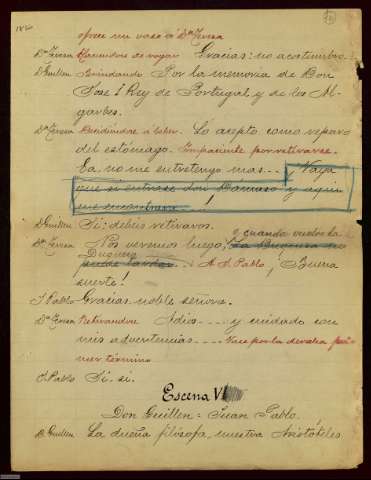 ofrece un vaso á Dª Teresa
Dª Teresa Haciendose de rogar Gracias: no acostumbro.
D Guillen Brindando Por la memoria de Don
José I Rey de Portugal y de los Al-
garbes.
Dª Teresa Decidiendose á beber. Lo acepto como reparo
del estómago. Impaciente por retirarse.
Ea, no me entretengo mas... Vaya
que si entrase don Damaso y aqui
me encontrara!
D Guillen Sí: debeis retiraros.
ó cuando vuelva la
Dª Teresa Nos veremos luego, La Duquesa no
Duquesa
puede tardar... A J. Pablo ¡Buena
suerte!
J. Pablo Gracias noble señora.
Dª Teresa Retirandose Adios.... y cuidado con
mis advertencias.... Vase por la derecha pri-
mer término
J. Pablo Sí. sí.
Escena VI
Don Guillen = Juan Pablo.
D Guillen La dueña filósofa, nuestra Aristóteles